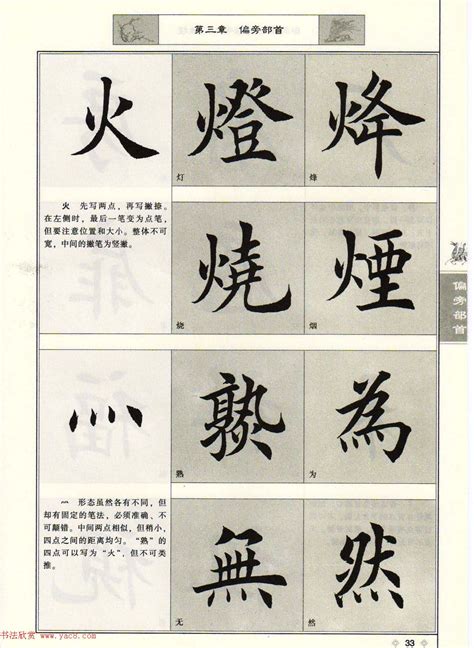 第三章 偏旁部首
火
燈
烽
灯
烽
火 先写两点，再写撇捺。
在左侧时，最后一笔变为点笔，
但要注意位置和大小。整体不可
宽，中间的撇笔为竖撇。
燒
煙
烧
烟
偏旁部首
灬
熟
為
熟
为
灬 形态虽然各有不同，但
却有固定的笔法，必须准确、不
可颠错。中间两点相似，但稍小，
四点之间的距离均匀。“熟”的
四点可以写为“火”，但不可类
推。
無
然
无
然
书法欣赏 www.yac8.com
33